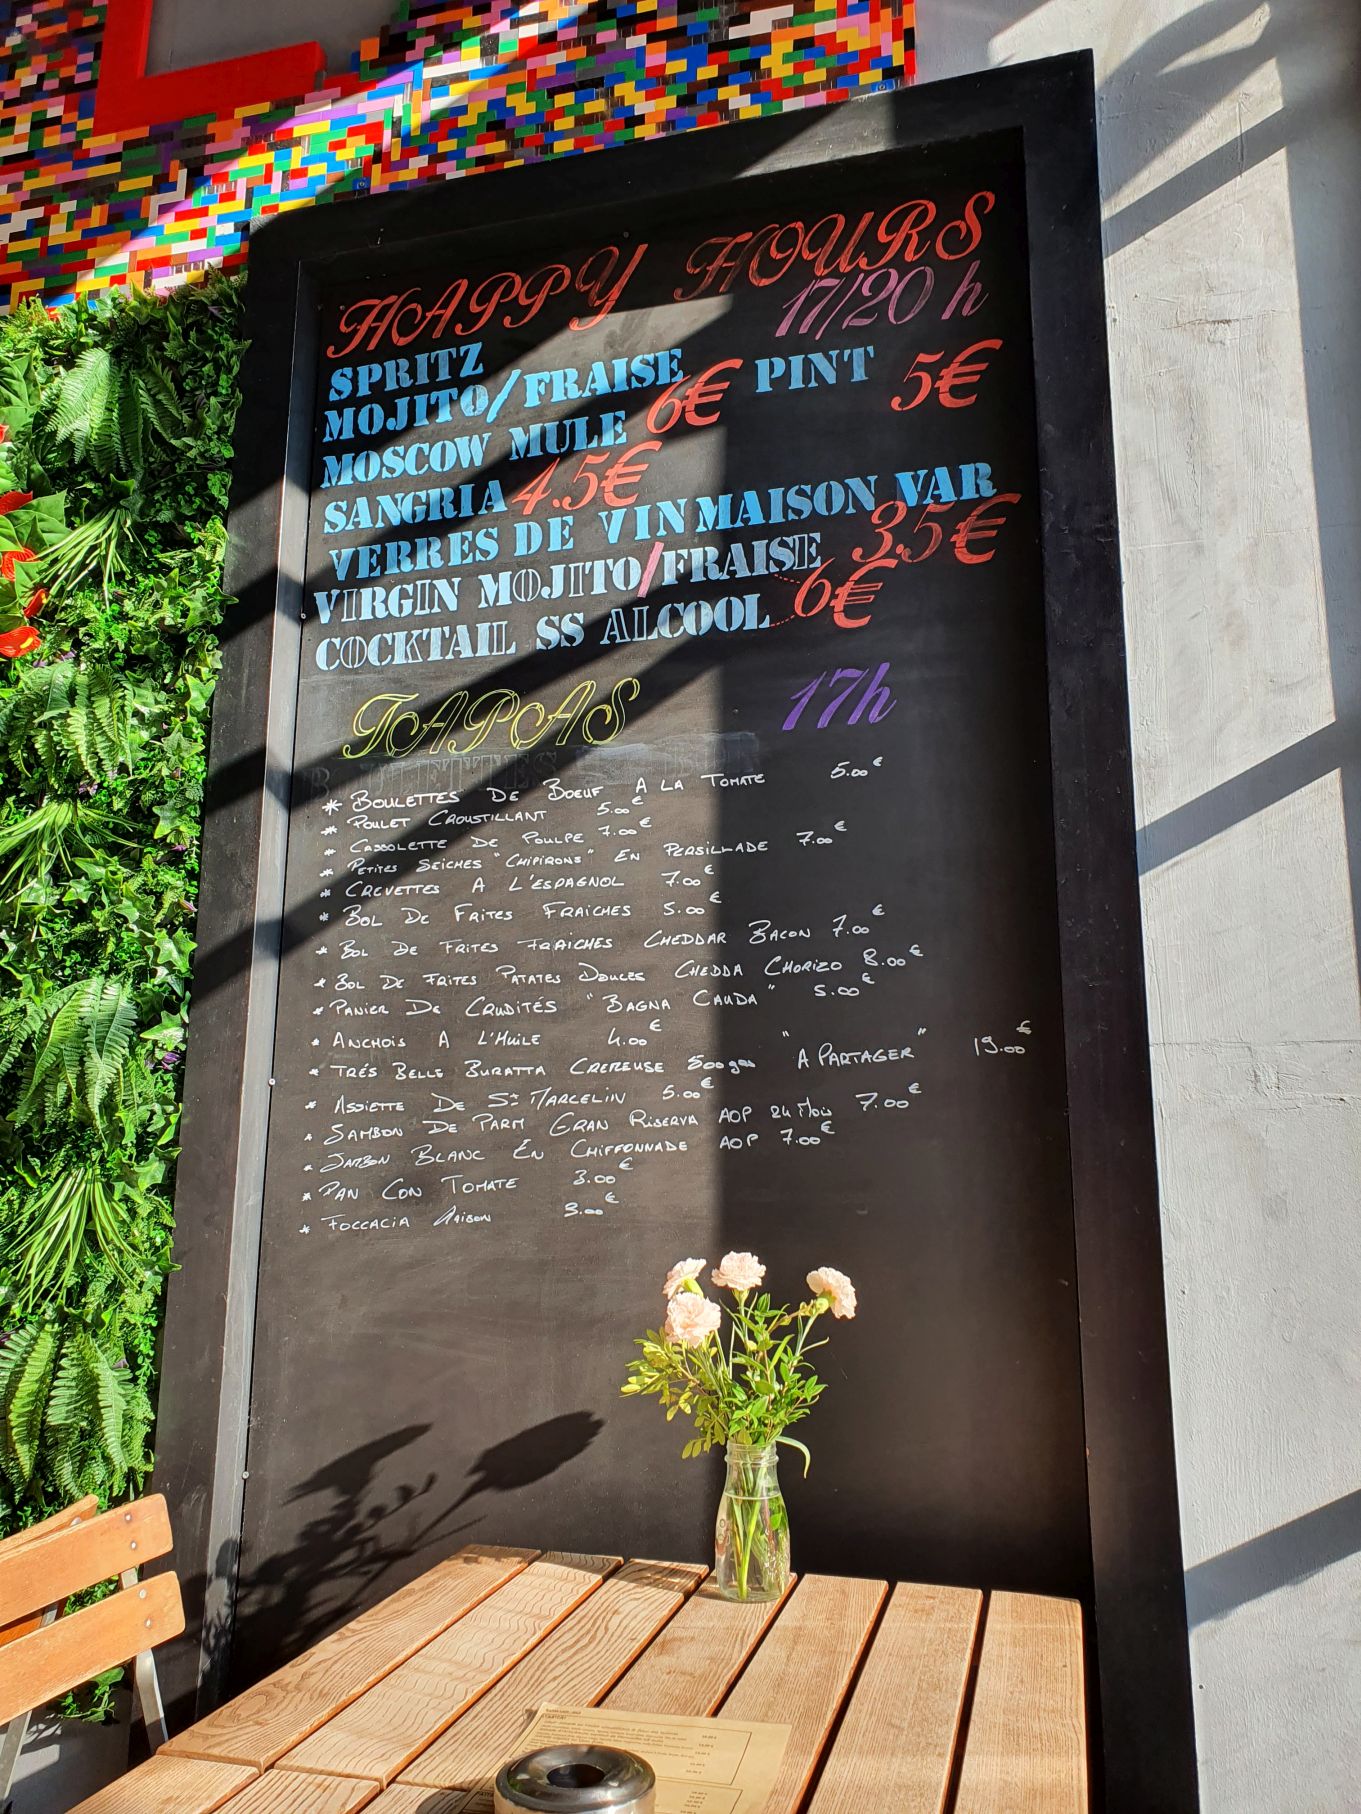 HAPPY HOURS
17/20 h
SPRITZ
MOJITO/FRAISE 6€ PINT 5€
MOSCOW MULE
SANGRIA 4.5€
VERRES DE VIN MAISON VAR 3.5€
VIRGIN MOJITO/FRAISE
COCKTAIL SS ALCOOL 6€
TAPAS 17h
* BOULETTES DE BOEUF A LA TOMATE 5.00€
* POULET CROUSTILLANT 5.00€
* CASSOLETTE DE POULPE 7.00€
* PETITES SEICHES "CHIPIRONS" EN PERSILLADE 7.00€
* CREVETTES A L'ESPAGNOL 7.00€
* BOL DE FRITES FRAICHES 5.00€
* BOL DE FRITES FRAICHES CHEDDAR BACON 7.00€
* BOL DE FRITES PATATES DOUCES CHEDDA CHORIZO 8.00€
* PANIER DE CRUDITÉS "BAGNA CAUDA" 5.00€
* ANCHOIS A L'HUILE 4.00€
* TRÉS BELLE BURATTA CREMEUSE 500grs "A PARTAGER" 19.00€
* ASSIETTE DE ST MARCELIN 5.00€
* JAMBON DE PARM GRAN RISERVA AOP 24 MOIS 7.00€
* JAMBON BLANC EN CHIFFONNADE AOP 7.00€
* PAN CON TOMATE 3.00€
* FOCCACIA MAISON 3.00€